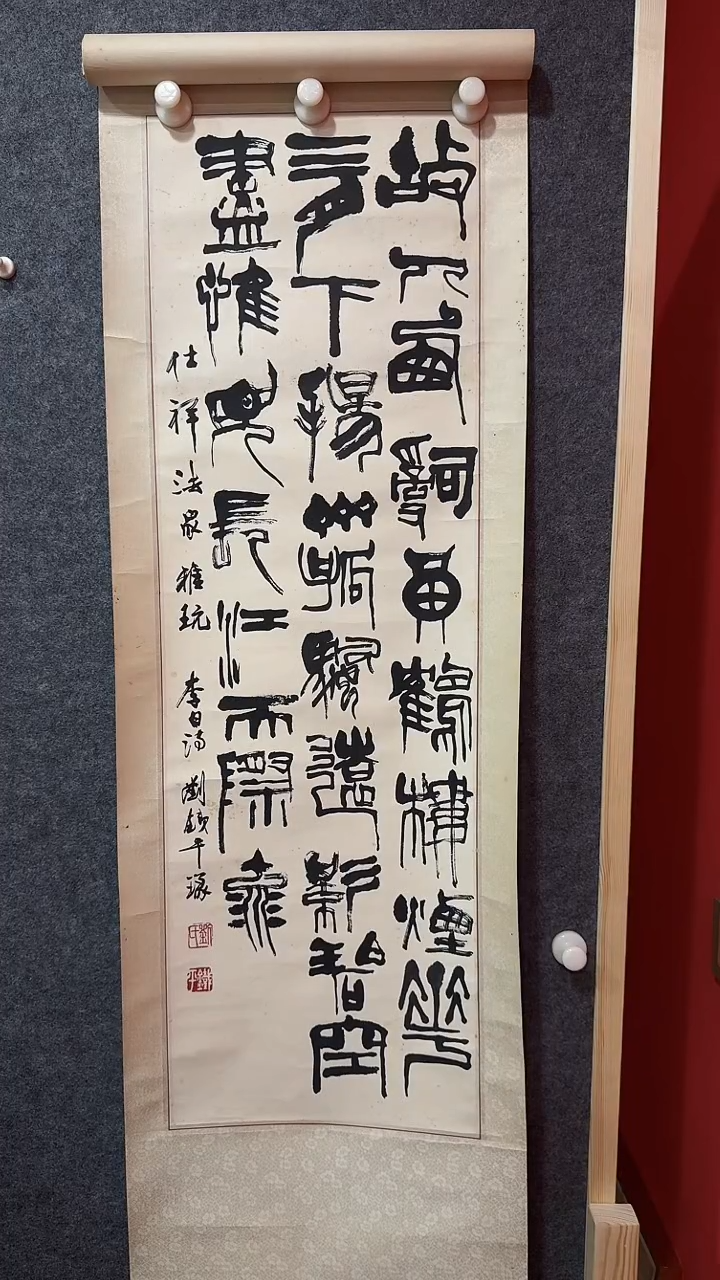 故人西辭黃鶴樓煙華
三月下揚州孤帆遠影碧空
盡惟見長江天際流
仕祥法家雅玩 李白詩 劉鐵平
劉氏